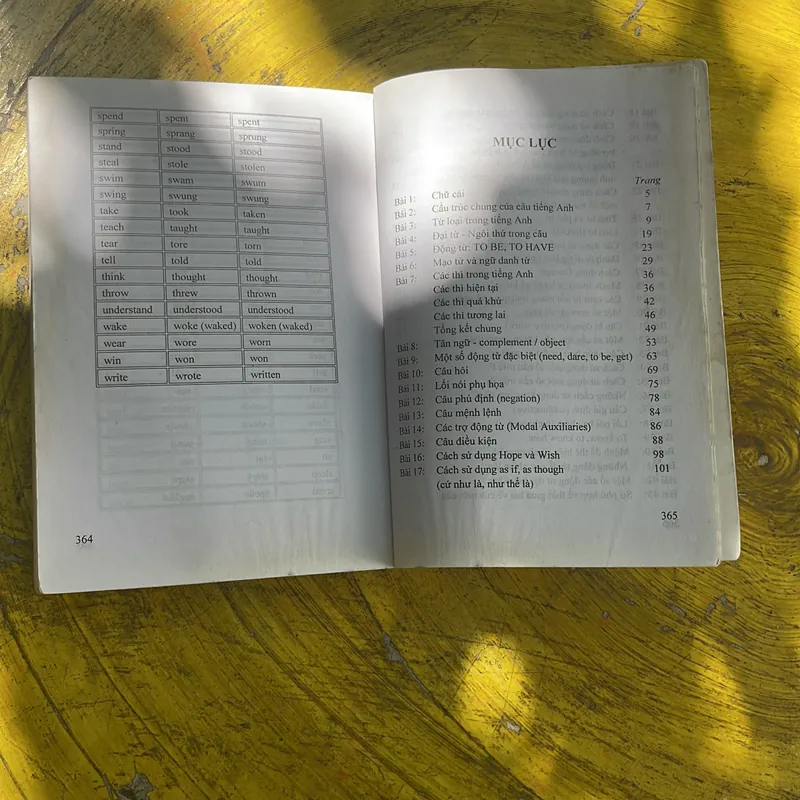 spend spent spent
spring sprang sprung
stand stood stood
steal stole stolen
swim swam swum
swing swung swung
take took taken
teach taught taught
tear tore torn
tell told told
think thought thought
throw threw thrown
understand understood understood
wake woke (waked) woken (waked)
wear wore worn
win won won
write wrote written
364
MỤC LỤC
Trang
Bài 1: Chữ cái 5
Bài 2: Cấu trúc chung của câu tiếng Anh 7
Bài 3: Từ loại trong tiếng Anh 9
Bài 4: Đại từ - Ngôi thứ trong câu 19
Bài 5: Động từ: TO BE, TO HAVE 23
Bài 6: Mạo từ và ngữ danh từ 29
Bài 7: Các thì trong tiếng Anh 36
Các thì hiện tại 36
Các thì quá khứ 42
Các thì tương lai 46
Tổng kết chung 49
Bài 8: Tân ngữ - complement / object 53
Bài 9: Một số động từ đặc biệt (need, dare, to be, get) 63
Bài 10: Câu hỏi 69
Bài 11: Lối nói phụ họa 75
Bài 12: Câu phủ định (negation) 78
Bài 13: Câu mệnh lệnh 84
Bài 14: Các trợ động từ (Modal Auxiliaries) 86
Bài 15: Câu điều kiện 88
Bài 16: Cách sử dụng Hope và Wish 98
Bài 17: Cách sử dụng as if, as though 101
(cứ như là, như thể là)
365